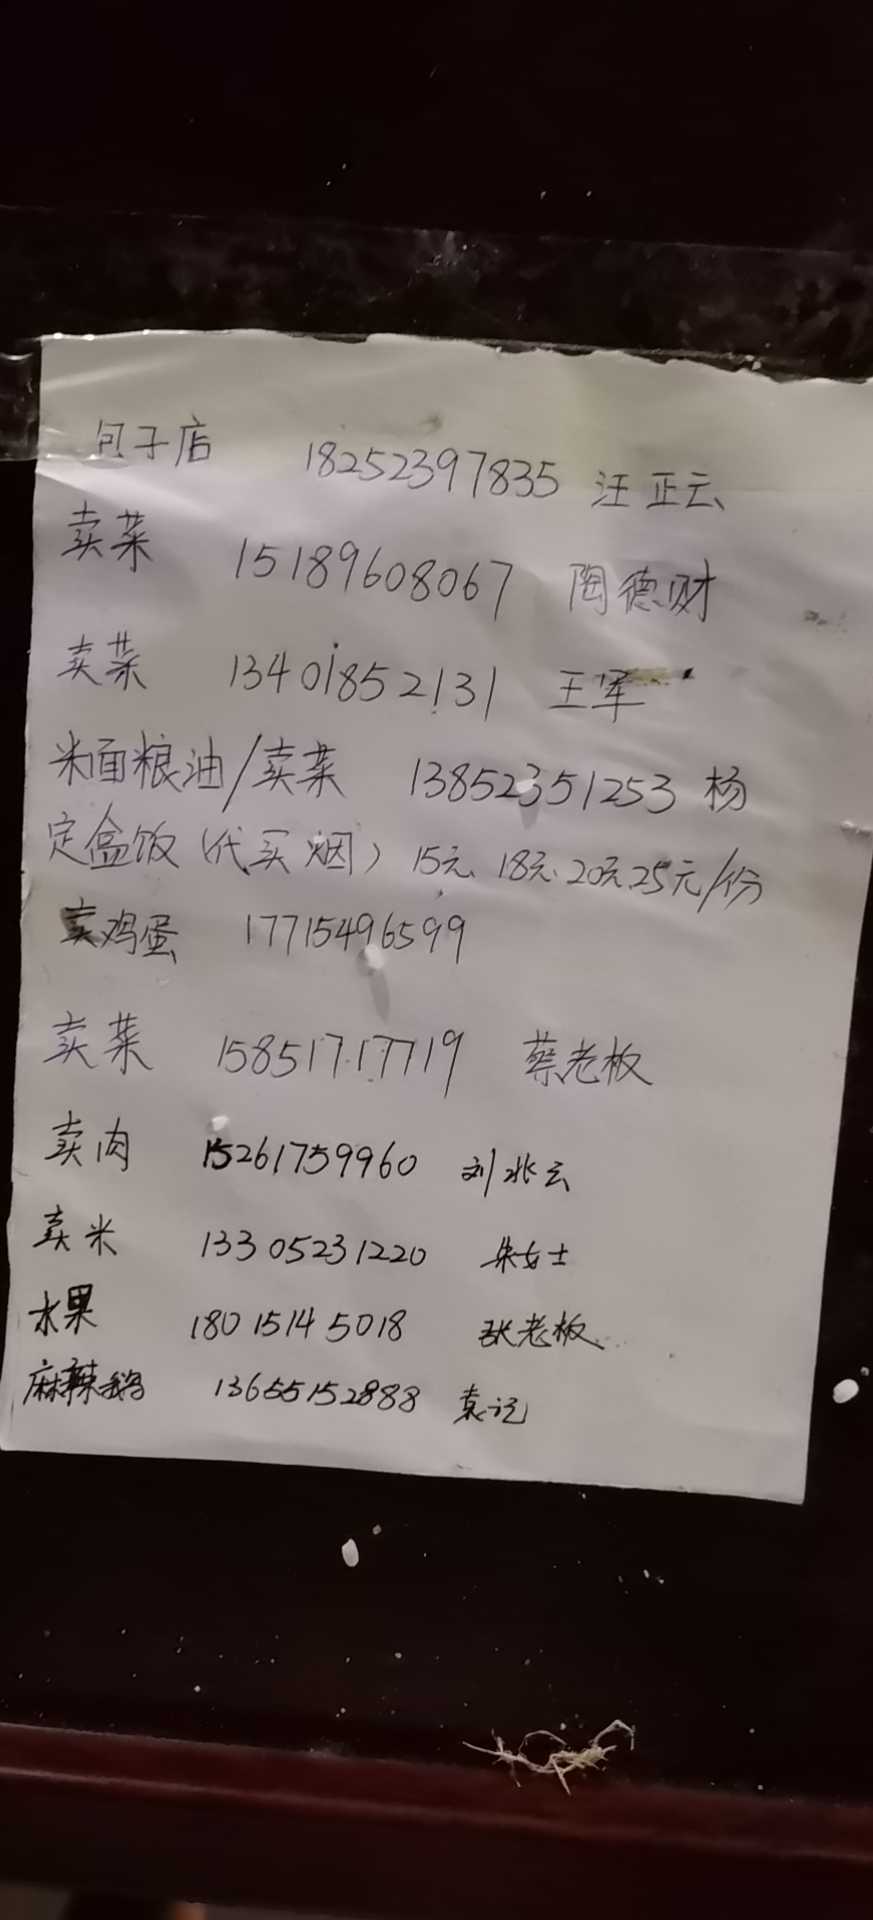 包子店 18252397835 汪正云
卖菜 15189608067 陶德财
卖菜 13401852131 王军
米面粮油/卖菜 13852351253 杨
定盒饭(代买烟) 15元、18元、20元、25元/份
卖鸡蛋 17715496599
卖菜 15851717719 蔡老板
卖肉 15261759960 刘兆云
卖米 13305231220 朱女士
水果 18015145018 张老板
麻辣鹅 13655152888 袁记